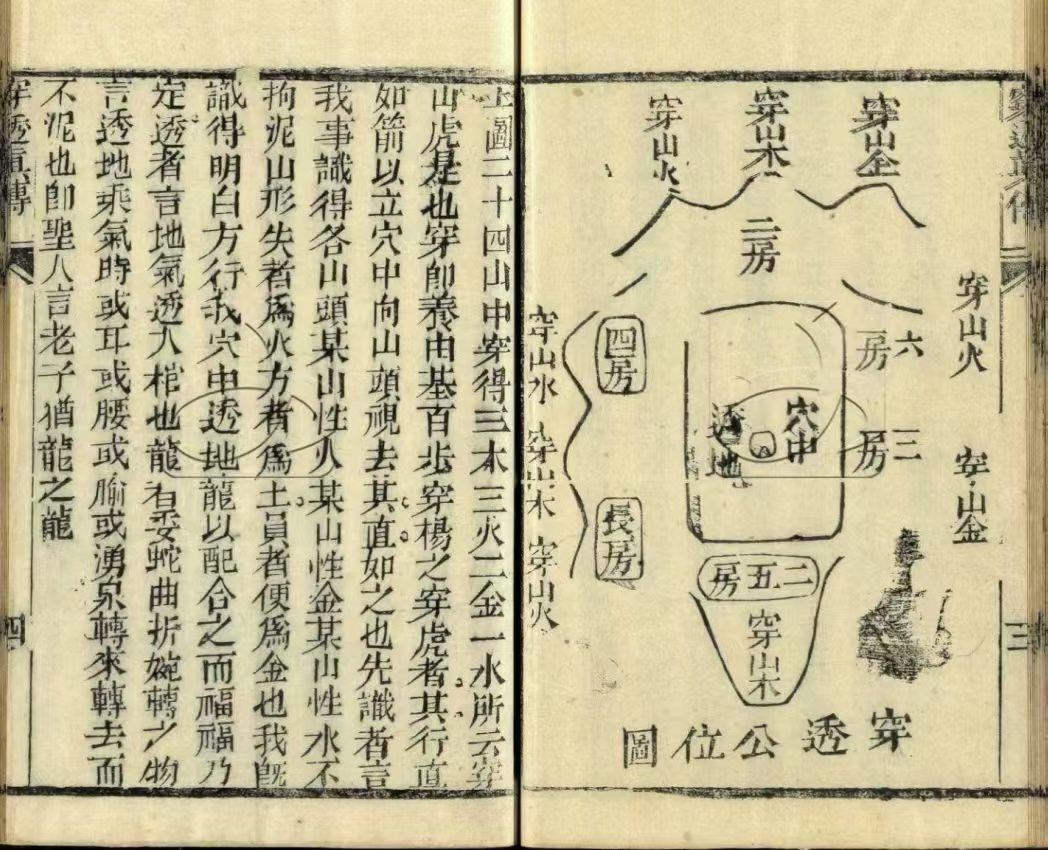 穿山金
穿山木
穿山火
二房
穿山火
六房
穿山金
三房
穴中
透地
四房
長房
穿山水
穿山木
穿山火
二五房
穿山木
穿透公位圖
三
上圖二十四山中穿得三木三火二金一水所云穿
山虎是也穿即養由基百步穿楊之穿虎者其行直
如箭以立穴中向山頭視去其直如之也先識者言
我事識得各山頭某山性火某山性金某山性水不
拘泥山形失者為火方者為土員者便為金也我既
識得明白方行我穴中透地龍以配合之而福福乃
定透者言地氣透入棺也龍者委蛇曲折婉轉之物
言透地乘氣時或耳或腰或腧或湧泉轉來轉去而
不泥也即聖人言老子猶龍之龍
穿透真傳
四